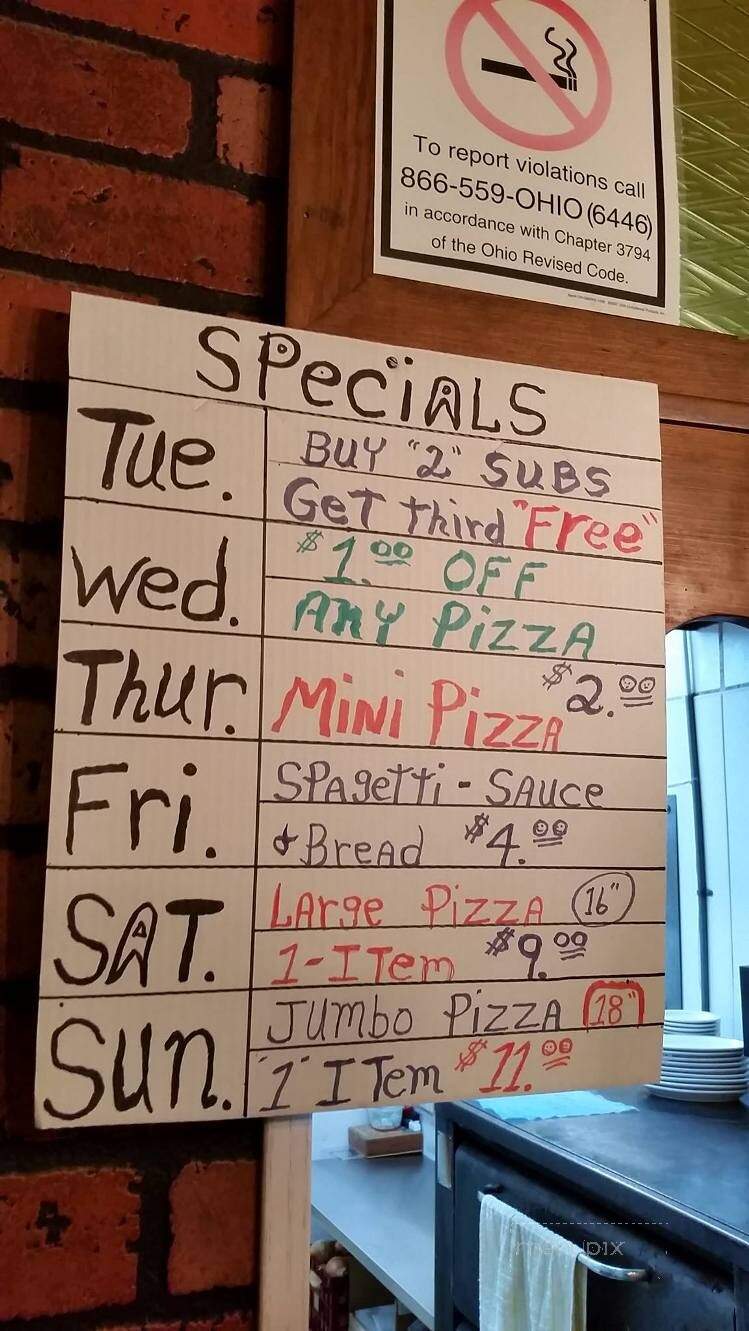 To report violations call
866-559-OHIO (6446)
in accordance with Chapter 3794
of the Ohio Revised Code.
SPeciALS
Tue.
BUY "2" SUBS
GeT third "Free"
Wed.
$1.00 OFF
ANY PiZZA
Thur.
MiNi PiZZA $2.00
Fri.
SPAgeTTi - SAUce
& BreAd $4.00
SAT.
LArge PiZZA 16"
1-ITem $9.00
Sun.
JUmbo PiZZA 18"
"1" ITem $11.00